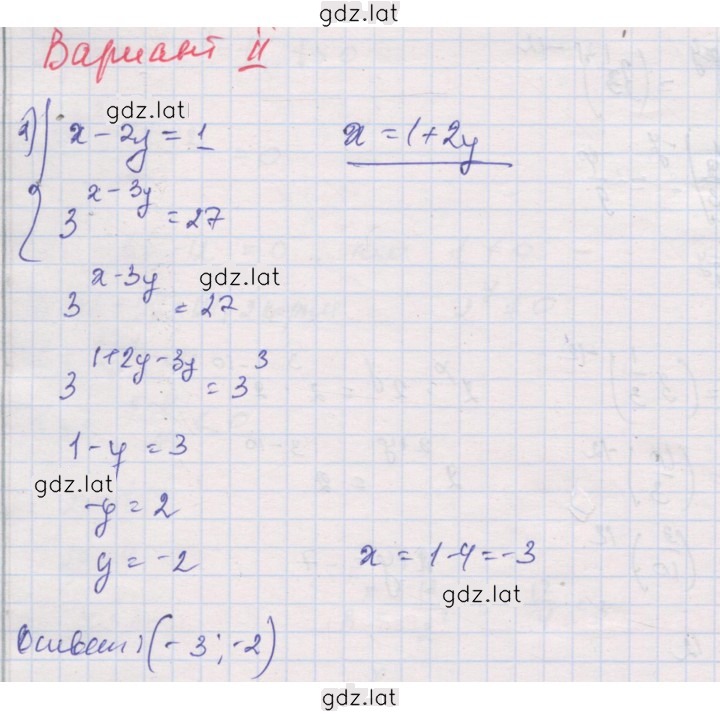 gdz.lat
Вариант II
gdz.lat
1) x - 2y = 1 x = 1 + 2y
3^(x-3y) = 27
gdz.lat
3^(x-3y) = 27
3^(1+2y-3y) = 3^3
1 - y = 3
gdz.lat
-y = 2
y = -2 x = 1 - 4 = -3
gdz.lat
Ответ: (-3; -2)
gdz.lat